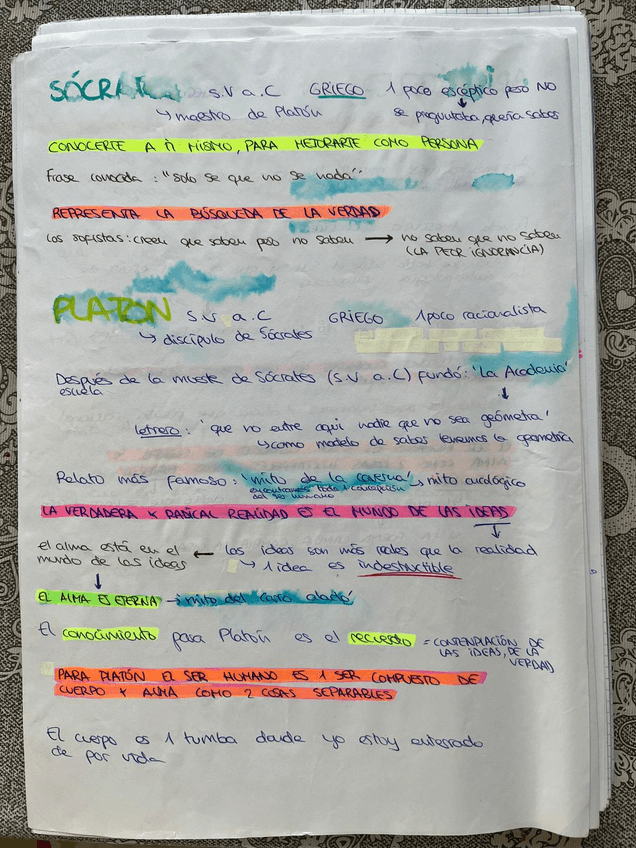 SÓCRATES s.V a.C GRIEGO 1 poco escéptico pero NO
↳ maestro de Platón se preguntaba, quería saber
CONOCERTE A TI MISMO, PARA MEJORARTE COMO PERSONA
Frase conocida: "solo se que no se nada"
REPRESENTA LA BÚSQUEDA DE LA VERDAD
los sofistas: creen que saben pero no saben → no saben que no saben
(LA PEOR IGNORANCIA)
PLATON s.V a.C GRIEGO 1 poco racionalista
↳ discípulo de Sócrates
Después de la muerte de Sócrates (s.V a.C) fundó: 'La Academia'
escuela
letrero: 'que no entre aqui nadie que no sea geómetra'
↳ como modelo de saber tenemos la geometría
Relato más famoso: 'mito de la caverna' → mito
encontramos toda 1 concepción
del ser humano
LA VERDADERA Y RADICAL REALIDAD ES EL MUNDO DE LAS IDEAS
el alma está en el ← las ideas son más reales que la realidad
mundo de las ideas ↳ 1 idea es indestructible
EL ALMA ES ETERNA → mito del carro alado
El conocimiento para Platón es el recuerdo = CONTEMPLACIÓN DE
LAS IDEAS, DE LA
VERDAD
PARA PLATÓN EL SER HUMANO ES 1 SER COMPUESTO DE
CUERPO Y ALMA COMO 2 COSAS SEPARABLES
El cuerpo es 1 tumba donde yo estoy enterrado
de por vida